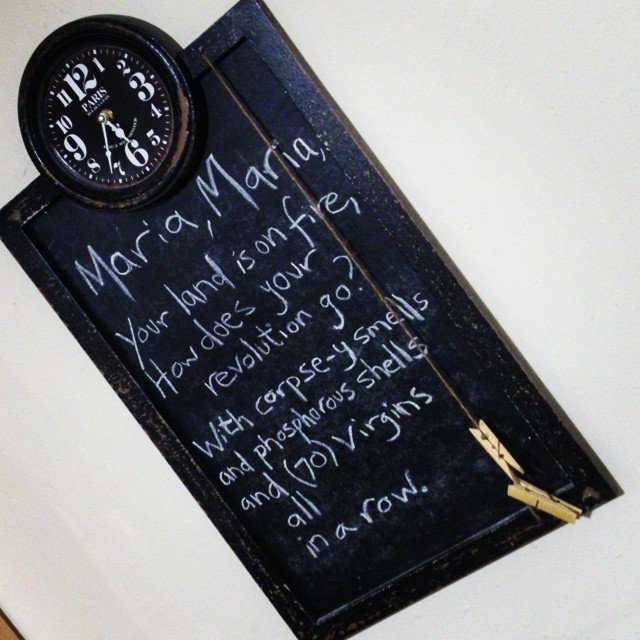 12
1
2
3
4
5
6
7
8
9
10
11
PARIS
Maria, Maria,
Your land is on fire,
How does your
revolution go?
With corpse-y smells
and phosphorous shells
and (70) Virgins
all
in a row.